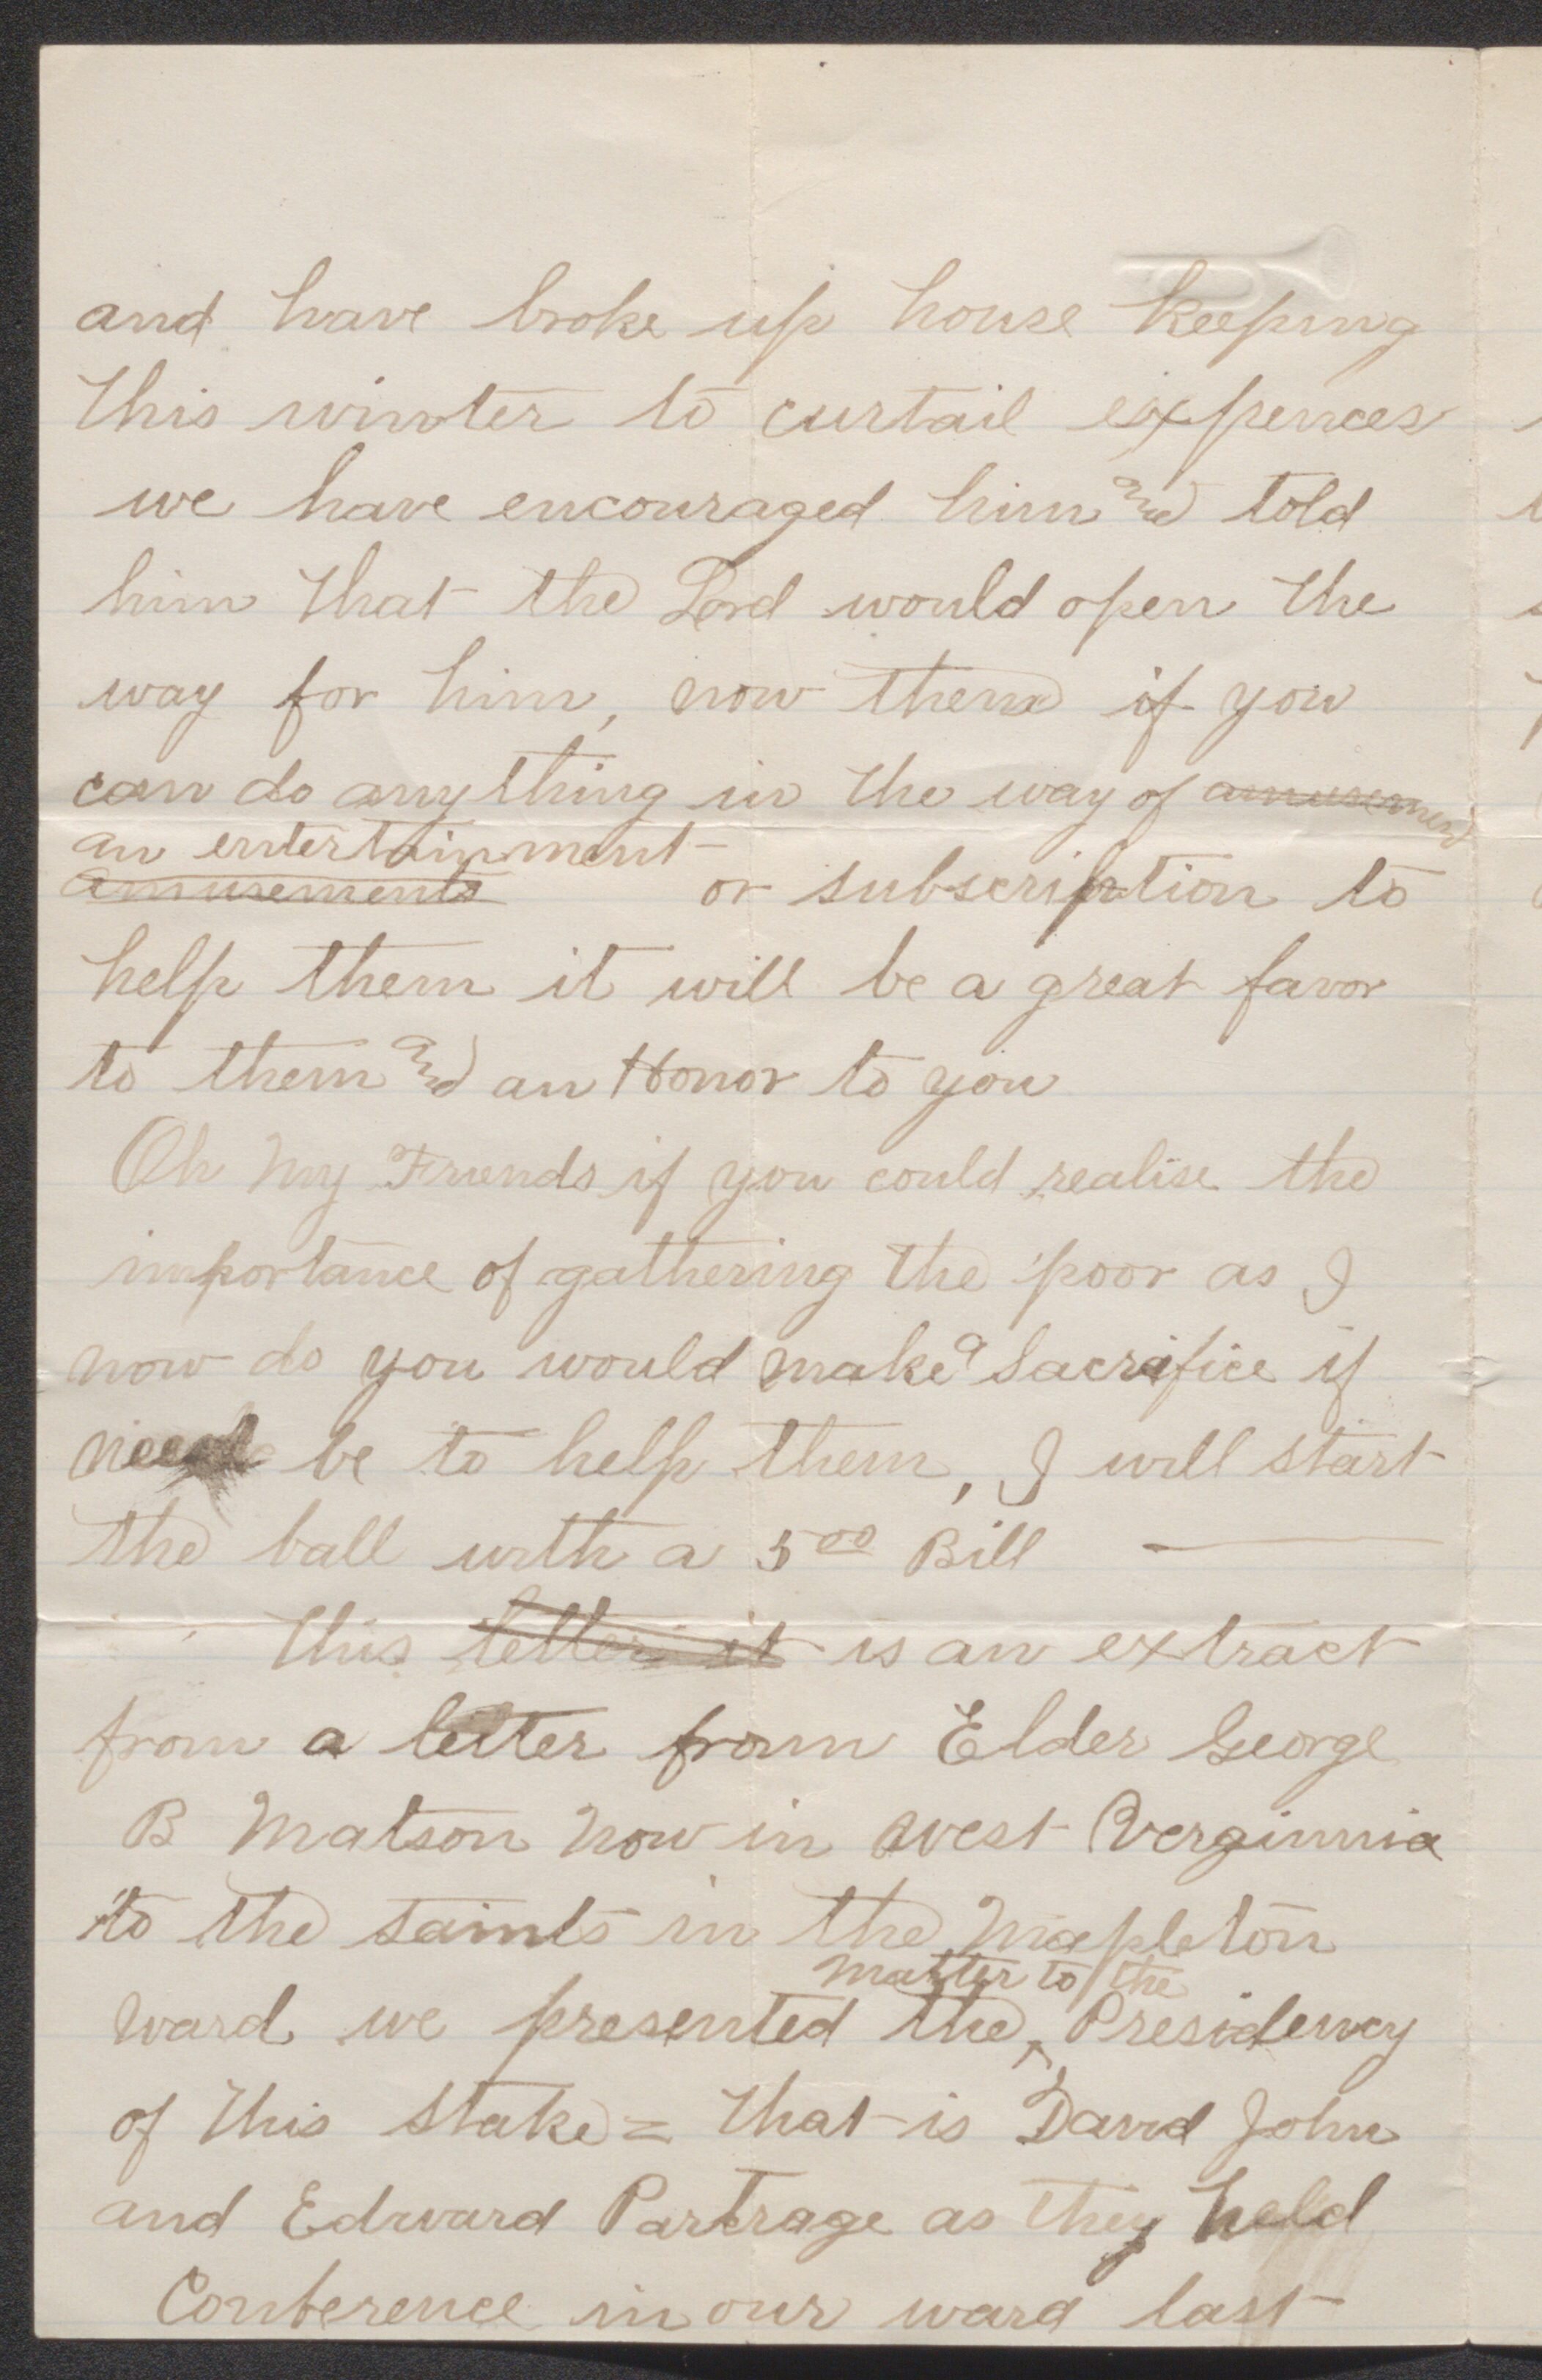 and have broke up house keeping
this winter to curtail expences
we have encouraged him and told
him that the Lord would open the
way for him, now then if you
can do anything in the way of amusement
an entertainment
amusements or subscription to
help them it will be a great favor
to them and an Honor to you
Oh My Friends if you could realise the
importance of gathering the poor as I
now do you would make a sacrifice if
need be to help them, I will start
the ball with a 5 00 Bill
This letter it is an extract
from a letter from Elder George
B Matson Now in West Verginnia
to the saints in the Mapleton
matter to the
ward we presented the ^ Presidency
of this Stake = that is David John
and Edward Partrage as they held
Conference in our ward last